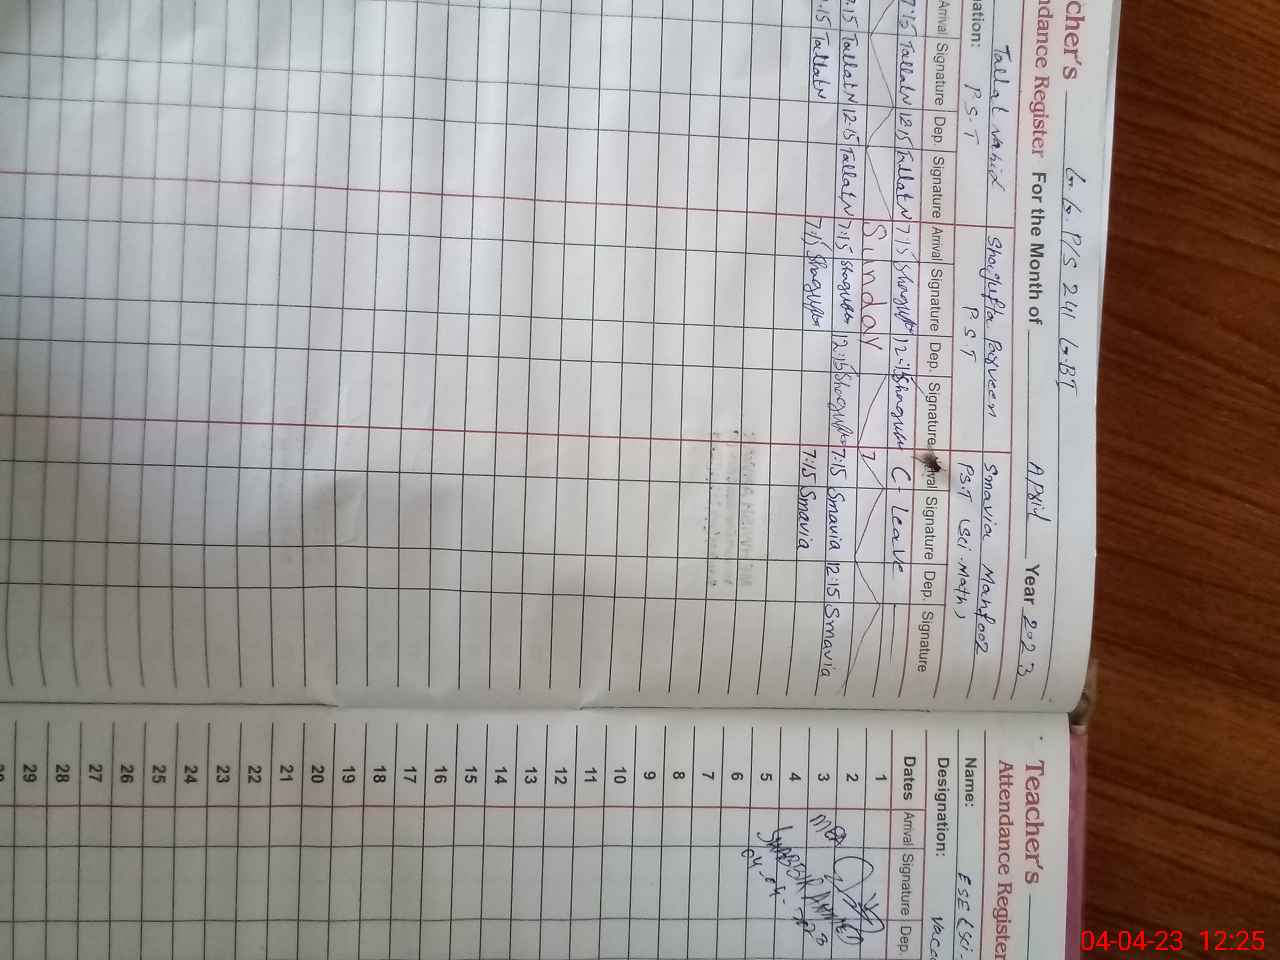 cher's G.G.P/S 241 G.BI
ndance Register For the Month of April Year 2023
Tallat Nahid Shagufta Parveen Smavia Manfooz
nation: P.S.T P.S.T P.S.T (Sci-Math)
Arrival Signature Dep. Signature Arrival Signature Dep. Signature Arrival Signature Dep. Signature
7:15 Tallat N 12:15 Tallat N 7:15 Shagufta 12:15 Shagufta C- Leave
Sunday
7:15 Tallat N 12:15 Tallat N 7:15 Shagufta 12:15 Shagufta 7:15 Smavia 12:15 Smavia
7:15 Tallat N 7:15 Shagufta 7:15 Smavia
Teacher's
Attendance Register
Name: ESE (Sci-
Designation:
Dates Arrival Signature Dep.
1
2
3
4
5
6
7
8
9
10
11
12
13
14
15
16
17
18
19
20
21
22
23
24
25
26
27
28
29
04-04-23 12:25